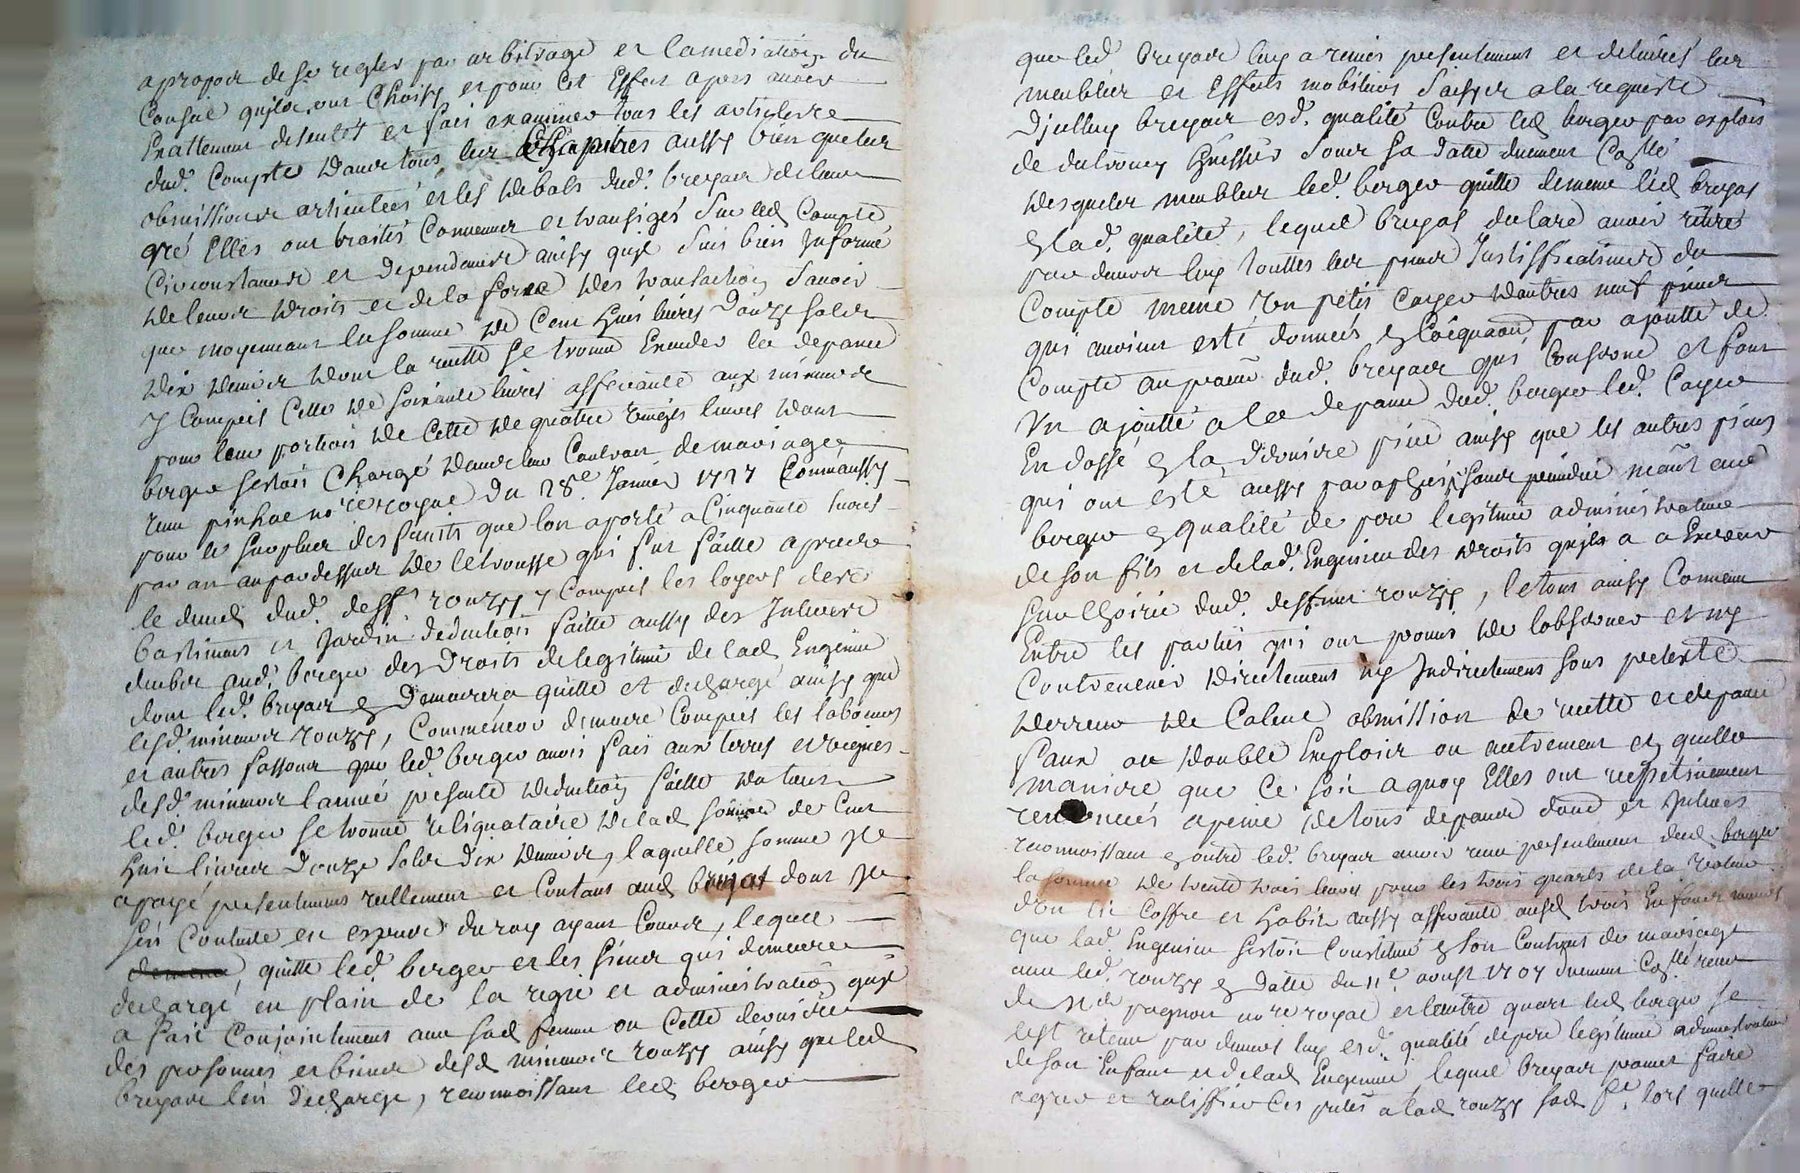 a propos de se regler par arbitrage et la mediation du
Conseil quils ont choisy et pour cet Effet apres avoir
Exattement discuté et fait examiner tous les articles de
dud. Compte dans tous les Chapitres aussy bien que les
obmissions articulées et les debats dud. breyat de leur
gré Elles ont traités Convenues et transigés sur led Compte
Circonstances et dependances ainsy quil suit bien Informé
de leurs droits et de la force des transactions savoir
que moyenant la somme de Cent huit livres douze sols
dix deniers dont la recette se trouve Exceder la depance
y Compris Celle de soixante livres afferante aux mineurs
pour leur portion de Celle de quatre vingts livres dont
berger sestoit Chargé dans leur Contrat de mariage
receu notre royal du 28e. Janvier 1727 Comm'aussy
pour le surplus des fruits que lon a porté a Cinquante livres
par an au pardessus de qui fut faitte apres
le deuil dud. deff. rouzy y Compris les loyers des
bastimens et Jardin deduction faitte aussy des Interets
deubs aud. berger des Droits de legitime de lad Eugenie
dont led. breyat en Demeurera quitte et dechargé ainsy que
lesd. mineurs rouzy, Comm'encor demeure Compris les labours
et autres fassons que led. berger avoit fait aux terres et vignes
desd. mineurs l'année presente deduction faitte du tout
led. berger se trouve reliquataire de lad somme de Cent
huit livres douze sols dix deniers, laquelle somme Il
a payé presentement reellement et Contant aud breyat dont Il
s'est Contenté en espece du roy ayant Cours, lequel
quitte led. berger et les siens qui demeure
dechargé en plain de la regie et administration quil
a fait Conjointement avec sad femme ou Cette derniere
des personnes et biens desd mineurs rouzy ainsy que led
breyat l'en decharge, reconnoissant led berger
que led. breyat luy a remis presentement et delivrés les
meubles et Effets mobiliers saisys a la requeste
breyat esd. qualité Contre led berger par exploit
de huissier sous sa datte duement Cotlé
desquels meubles led. berger quitte de meme led breyat
en lad. qualité, lequel breyat declare avoir retiré
par devers luy touttes les pieces Justifficatives du
Compte meme un petit Cayer d'autres neuf pieces
qui avoient esté données en par ajoutté de
Compte au dud. breyat qui et font
un ajoutté a la depance dud. berger led. Cayer
Endossé en la Derniere piece ainsy que les autres pieces
qui ont esté aussy paraphées sans prejudice neanmoins aud
berger en qualité de pere legitime administrateur
de son fils et de lad. Eugenie des droits quils a a Exercer
sur l'hoirie dud. deffunt rouzy, le tout ainsy Convenu
Entre les parties qui ont promis de l'observer et ny
Contrevenir directement ny Indirectement sous pretexte
d'erreur de Calcul obmission de recette et depance
faux ou double Employ ou autrement en quelle
maniere que Ce soit a quoy Elles ont respectivement
renoncées a peine de tous depances et Interets
reconnoissant en outre led. breyat avoir receu presentement dud berger
la somme de trente trois livres pour les trois quarts de la valeur
d'un lit Coffre et habits aussy afferante ausd trois Enfans
que lad. Eugenie sestoit Constitué en son Contrat de mariage
avec led. rouzy en datte du 11e. aoust 1707 duement Cotlé receu
de pagnon notre royal et l'autre quart led berger se
l'est retenu par devers luy esd. qualité de pere legitime administrateur
de son Enfant et de lad Eugenie, lequel breyat promet faire
agreer et ratiffier Ces presentes a lad rouzy sad f. lors quelle